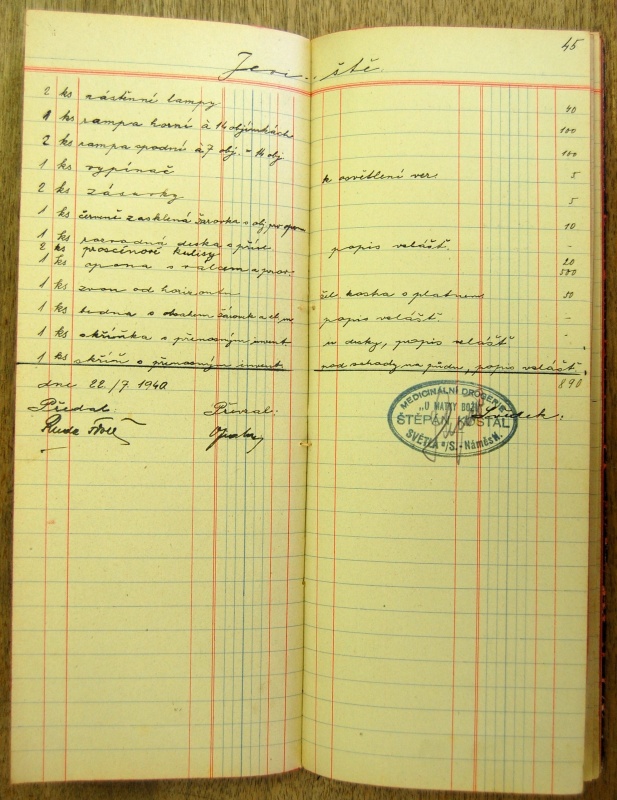 45
Jeviště.
2 ks nástěnní lampy 40
1 ks rampa horní à 14 objímkách 100
2 ks rampa spodní à 7 obj. = 14 obj 100
1 ks vypínač k osvětlení ver. 5
2 ks zásuvky 5
1 ks červeně zasklená žárovka s obj. pro oponu 10
1 ks rozvodná deska s přísl. popis zvlášť -
2 ks proscénové kulisy 20
1 ks opona s válcem a 500
1 ks zvon od horizontu kostra s plátnem 50
1 ks bedna s obsahem žárovek a el. popis zvlášť. -
1 ks skříňka s přenosným invent. popis zvlášť -
1 ks skříň s přenosným invent. pod schody na půdu, popis zvlášť
dne 22./7 1940 890
Předal: Převzal: Soudek:
MEDICINÁLNÍ DROGERIE
„U MATKY BOŽÍ“
ŠTĚPÁN KOŠŤÁL
SVĚTLÁ n/S.-Náměstí.